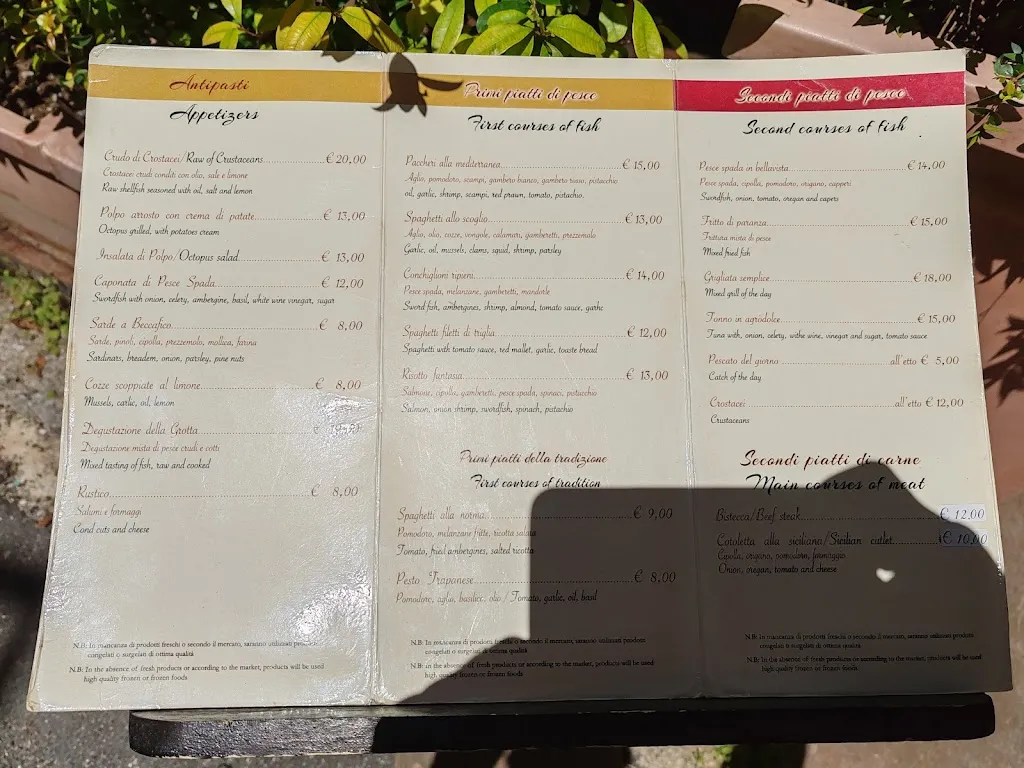 Antipasti
Appetizers
Crudo di Crostacei/Raw of Crustaceans € 20,00
Crostacei crudi conditi con olio, sale e limone
Raw shellfish seasoned with oil, salt and lemon
Polpo arrosto con crema di patate € 13,00
Octopus grilled, with potatoes cream
Insalata di Polpo/Octopus salad € 13,00
Caponata di Pesce Spada € 12,00
Swordfish with onion, celery, ambergine, basil, white wine vinegar, sugar
Sarde a Beccafico € 8,00
Sarde, pinoli, cipolla, prezzemolo, mollica, farina
Sardinars, breadem, onion, parsley, pine nuts
Cozze scoppiate al limone € 8,00
Mussels, carlic, oil, lemon
Degustazione della Grotta €
Degustazione mista di pesce crudi e cotti
Mixed tasting of fish, raw and cooked
Rustico € 8,00
Salumi e formaggi
Cond cuts and cheese
N.B: In mancanza di prodotti freschi o secondo il mercato, saranno utilizzati prodotti
congelati o surgelati di ottima qualità
N.B: In the absence of fresh products or according to the market, products will be used
high quality frozen or frozen foods
Primi piatti di pesce
First courses of fish
Paccheri alla mediterranea € 15,00
Aglio, pomodoro, scampi, gambero bianco, gambero rosso, pistacchio
oil, garlic, shrimp, scampi, red prawn, tomato, pistachio.
Spaghetti allo scoglio € 13,00
Aglio, olio, cozze, vongole, calamari, gamberetti, prezzemolo
Garlic, oil, mussels, clams, squid, shrimp, parsley
Conchiglioni ripieni € 14,00
Pesce spada, melanzane, gamberetti, mandorle
Sword fish, ambergines, shrimp, almond, tomato sauce, garlic
Spaghetti filetti di triglia € 12,00
Spaghetti with tomato sauce, red mallet, garlic, tovote bread
Risotto fantasia € 13,00
Salmone, cipolla, gamberetti, pesce spada, spinaci, pistacchio
Salmon, onion shrimp, swordfish, spinach, pistachio
Primi piatti della tradizione
First courses of tradition
Spaghetti alla norma € 9,00
Pomodoro, melanzane fritte, ricotta salata
Tomato, fried ambergines, salted ricotta
Pesto Trapanese € 8,00
Pomodoro, aglio, basilico, olio / Tomato, garlic, oil, basil
N.B: In mancanza di prodotti freschi o secondo il mercato, saranno utilizzati prodotti
congelati o surgelati di ottima qualità
N.B: in the absence of fresh products or according to the market, products will be used
high quality frozen or frozen foods
Secondi piatti di pesce
Second courses of fish
Pesce spada in bellavista € 14,00
Pesce spada, cipolla, pomodoro, origano, capperi
Swordfish, onion, tomato, oregan and capers
Fritto di paranza € 15,00
Frittura mista di pesce
Mixed fried fish
Grigliata semplice € 18,00
Mixed grill of the day
Tonno in agrodolce € 15,00
Tuna with, onion, celery, withe wine, vinegar and sugar, tomato sauce
Pescato del giorno all'etto € 5,00
Catch of the day
Crostacei all'etto € 12,00
Crustaceans
Secondi piatti di carne
Main courses of meat
Bistecca/Beef steak € 12,00
Cotoletta alla siciliana/Sicilian cutlet € 10,00
Cipolla, origano, pomodoro, formaggio
Onion, oregan, tomato and cheese
N.B: In mancanza di prodotti freschi o secondo il mercato, saranno utilizzati prodotti
congelati o surgelati di ottima qualità
N.B: In the absence of fresh products or according to the market, products will be used
high quality frozen or frozen foods